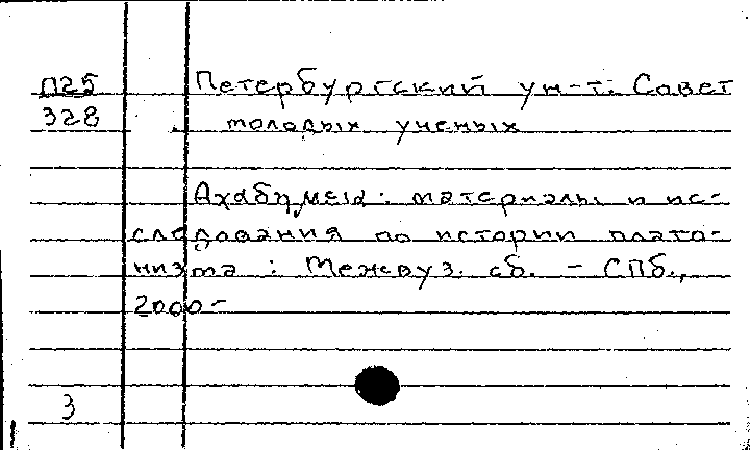 П25
328
Петербургский ун-т. Совет
молодых ученых
материалы и ис-
следования по истории плато-
низма : Межвуз. сб. - СПб.,
2000-
3